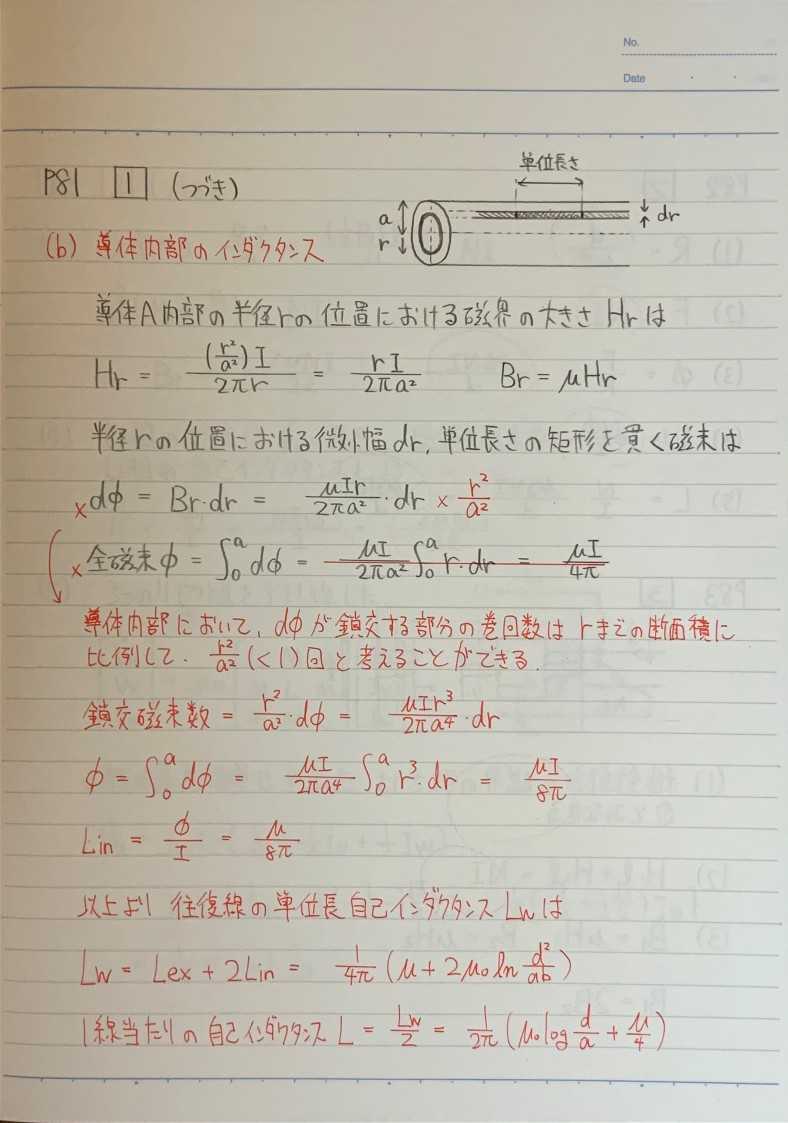 No.
Date
P81 1 (つづき)
単位長さ
a
r
dr
(b) 導体内部のインダクタンス
導体A内部の半径rの位置における磁界の大きさ Hrは
Hr = (r²/a²)I / 2πr = rI / 2πa²  Br = μHr
半径rの位置における微小幅dr, 単位長さの矩形を貫く磁束は
× dφ = Br・dr = μIr / 2πa² ・dr × r²/a²
× 全磁束φ = ∫₀ᵃ dφ = μI / 2πa² ∫₀ᵃ r・dr = μI / 4π
導体内部において, dφが鎖交する部分の巻回数は rまでの断面積に
比例して, r²/a² (<1) 回と考えることができる.
鎖交磁束数 = r²/a² ・dφ = μIr³ / 2πa⁴ ・dr
φ = ∫₀ᵃ dφ = μI / 2πa⁴ ∫₀ᵃ r³・dr = μI / 8π
Lin = φ / I = μ / 8π
以上より 往復線の単位長自己インダクタンスLwは
Lw = Lex + 2Lin = 1/4π (μ + 2μ₀ ln d²/ab)
1線当たりの自己インダクタンス L = Lw/2 = 1/2π (μ₀ log d/a + μ/4)